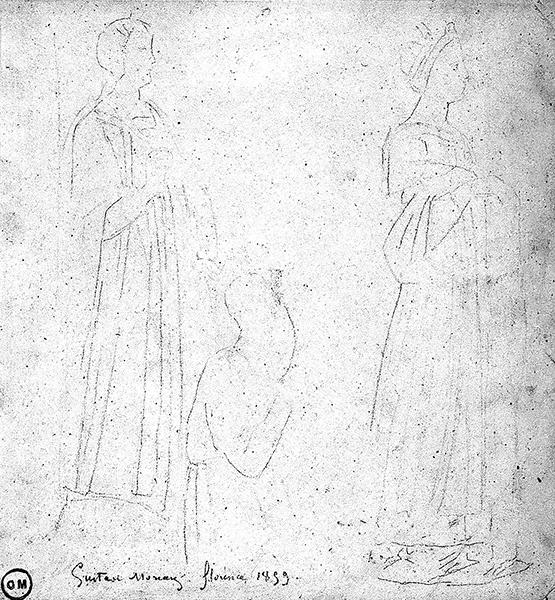 Gustave Moreau florence 1859.
GM